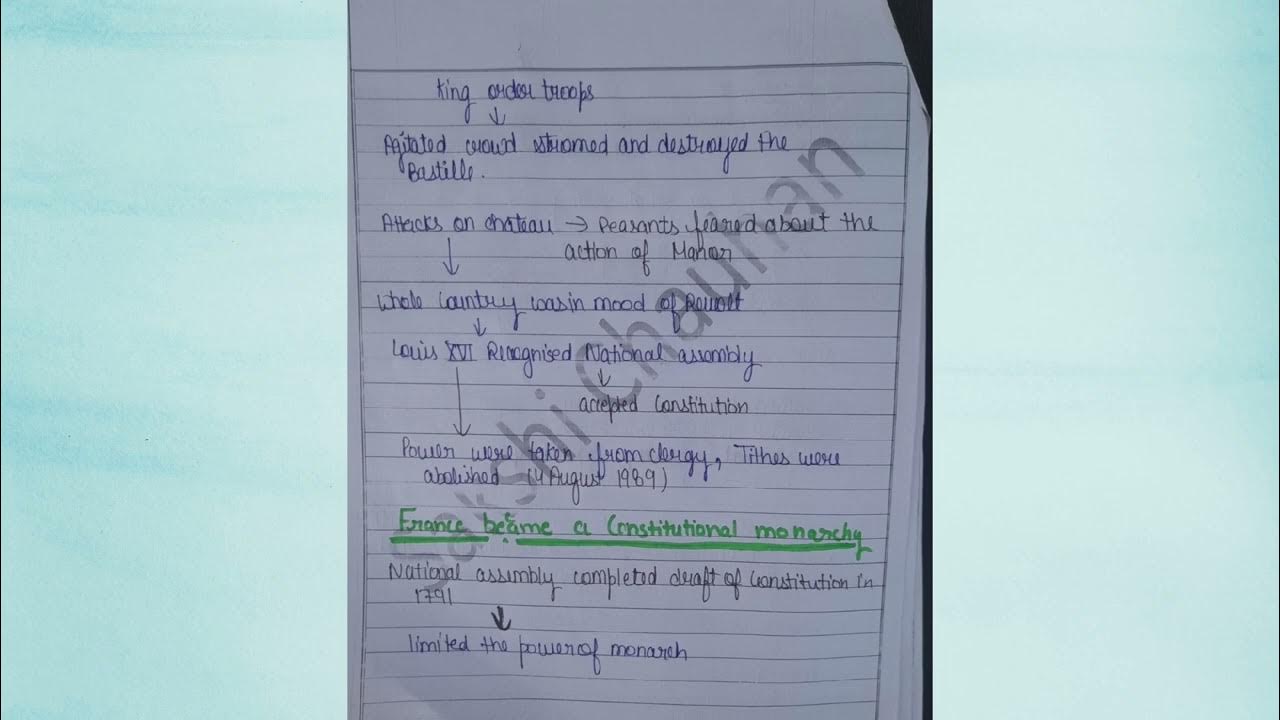 King order troops
↓
Agitated crowd striomed and destroyed the
Bastille.
Attacks on chateau → Peasants feared about the
action of Manor
↓
Whole Country was in mood of Revolt
↓
Louis XVI Recognised National assembly
↓
accepted Constitution
↓
Power were taken from clergy, Tithes were
abolished (4 August 1989)
France became a Constitutional monarchy
National assembly completed draft of Constitution in
1791
↓
limited the power of monarch
Sakshi Chauhan